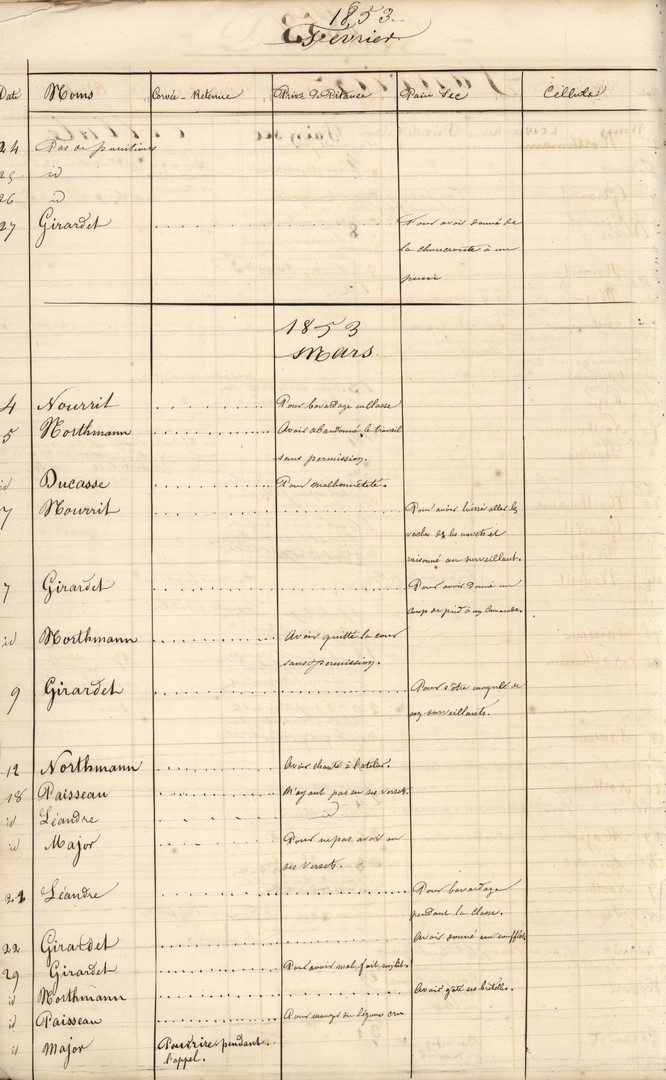 1853
Février
Date Noms Corvée-Retenue Privé de Pitance Pain Sec Cellule
24 Pas de punitions
25 id
26 id
27 Girardet Pour avoir donné de
la choucroute à un
puni
1853
Mars
4 Nourrit Pour bavardage en classe
5 Northmann Avoir abandonné le travail
sans permission.
id Ducasse Pour malhonnêteté.
7 Nourrit Pour avoir laissé aller les
vaches ds les navets et
raisonné au surveillant.
7 Girardet Pour avoir donné un
coup de pied à un camarade.
id Northmann Avoir quitté la cour
sans permission.
9 Girardet Pour s'être moqué de
ses surveillants.
12 Northmann Avoir chanté à l'atelier.
18 Paisseau N'ayant pas su ses versets.
id Léandre id
id Major Pour ne pas avoir su
ses versets.
21 Léandre Pour bavardage
pendant la classe.
22 Girardet Avoir donné un soufflet
29 Girardet Pour avoir mal fait
id Northmann Avoir gâté ses bretelles.
id Paisseau Pour manger du légume cru
id Major Pour rire pendant
l'appel.